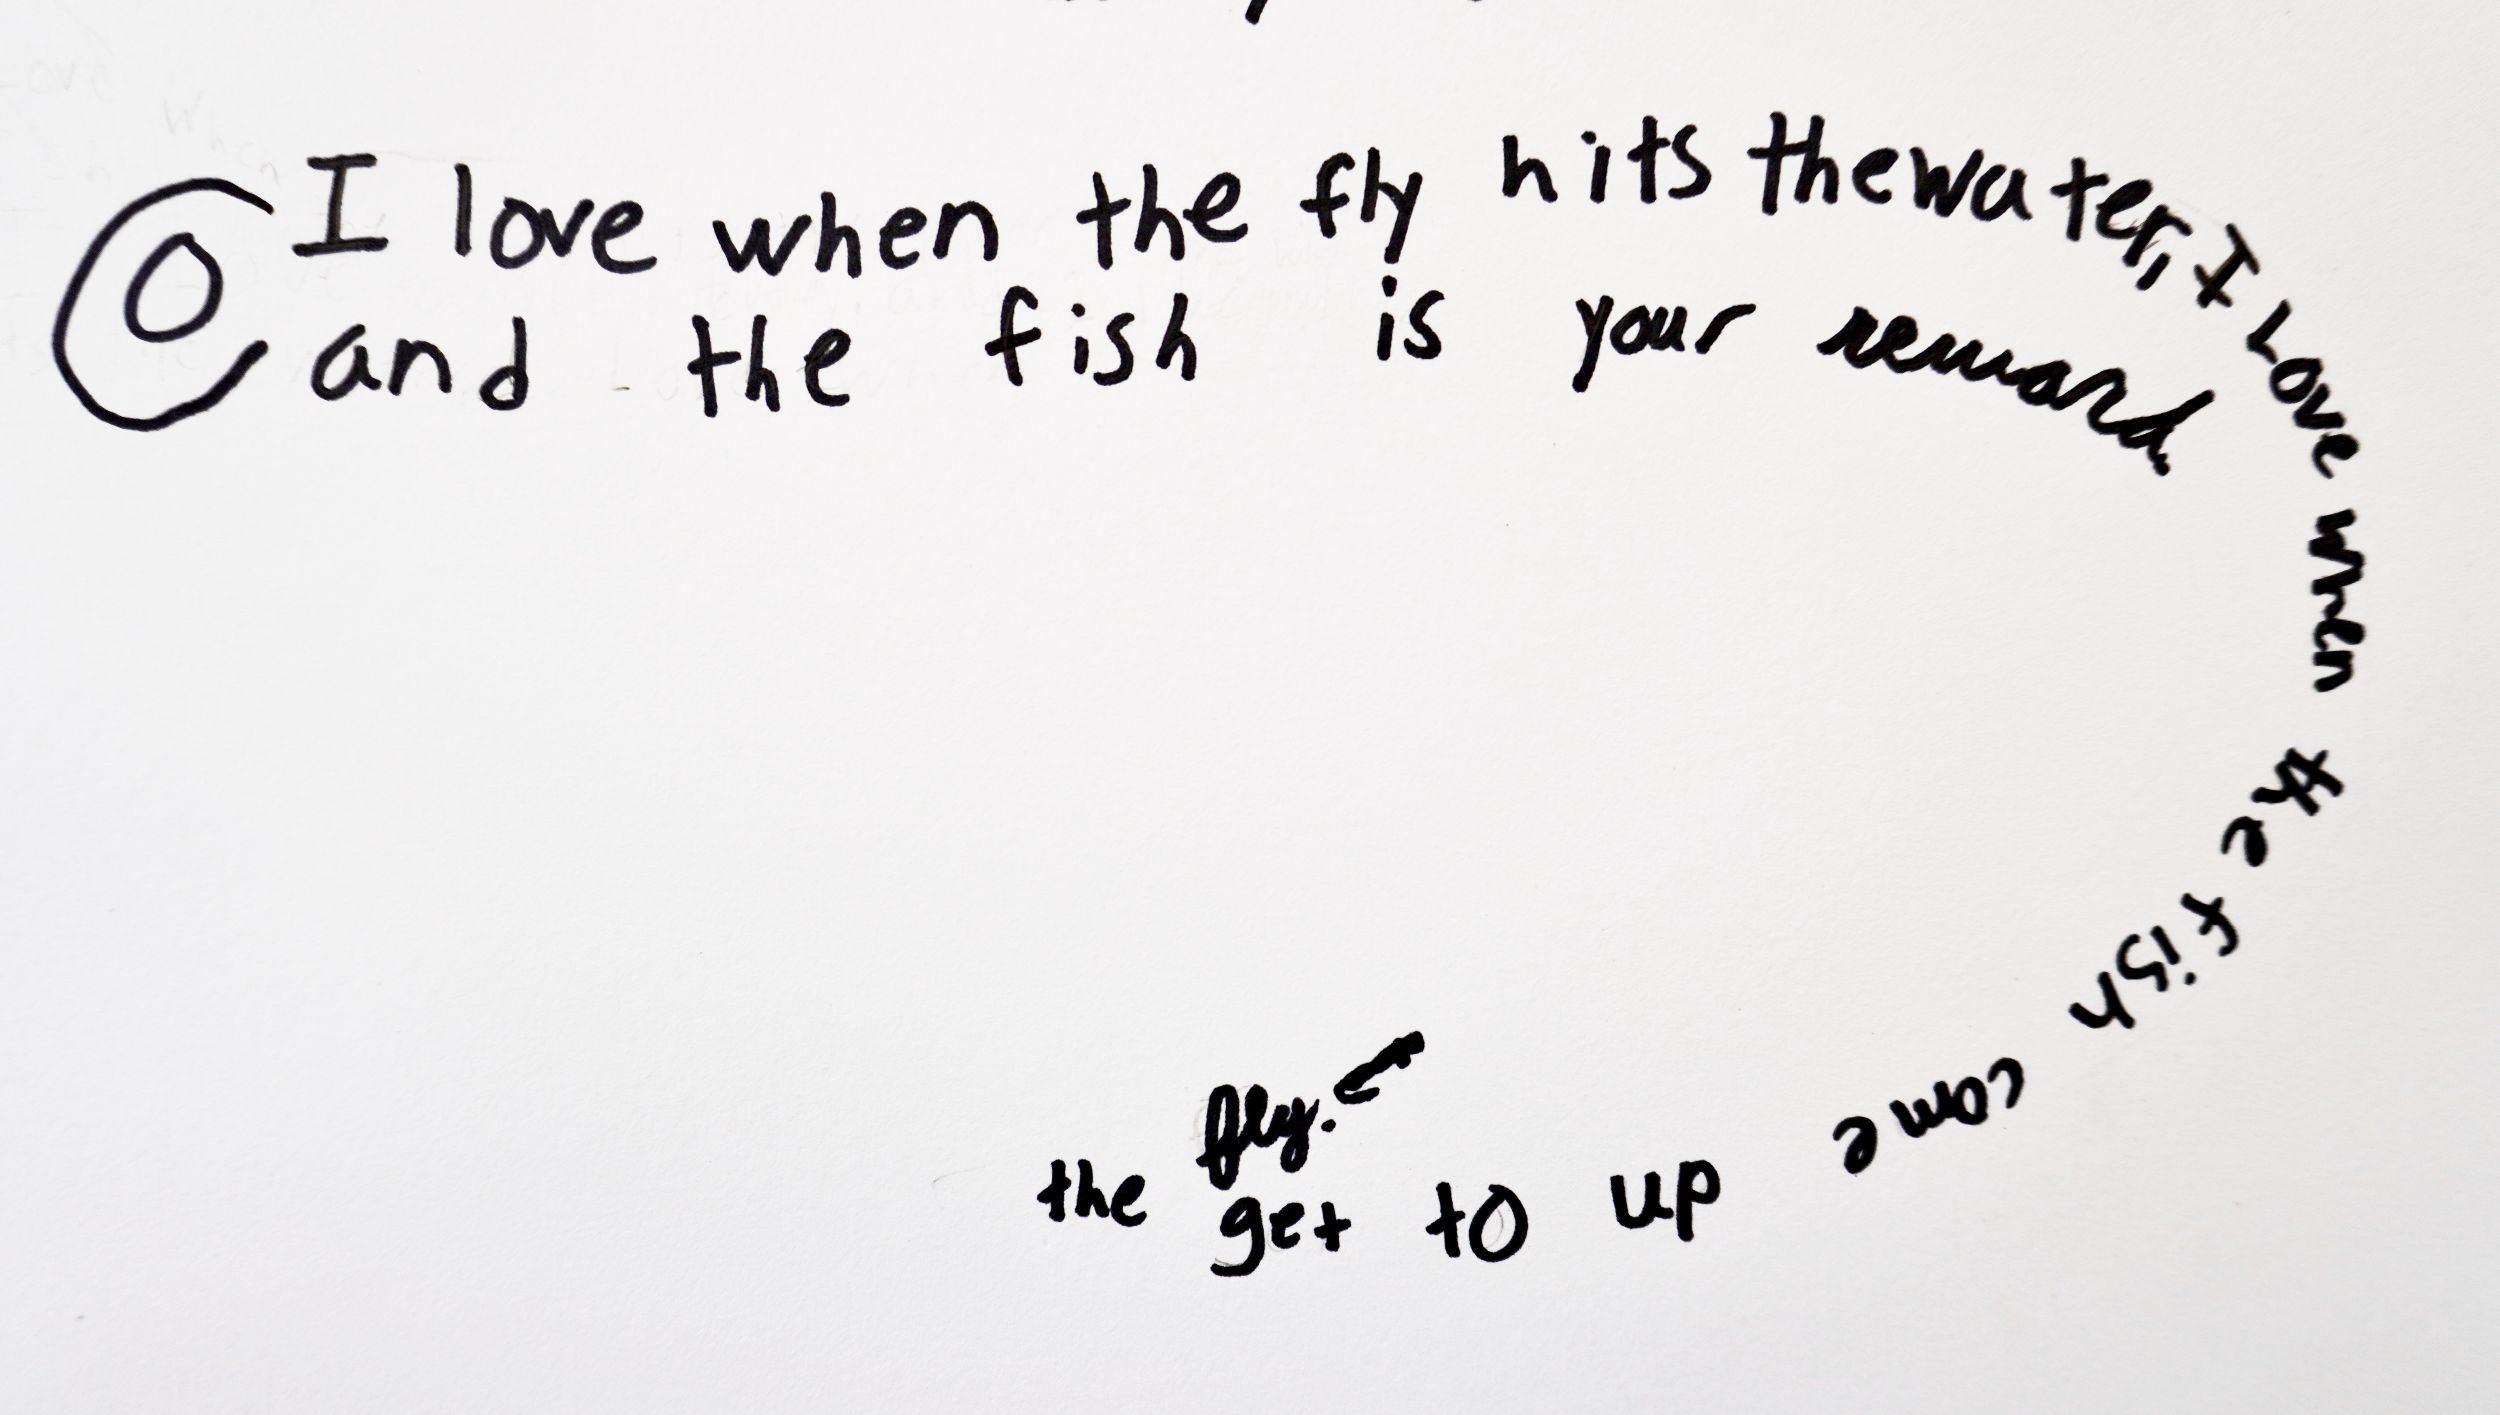 I love when the fly hits the water, I Love when the fish come up to get the fly.
and the fish is your remard.